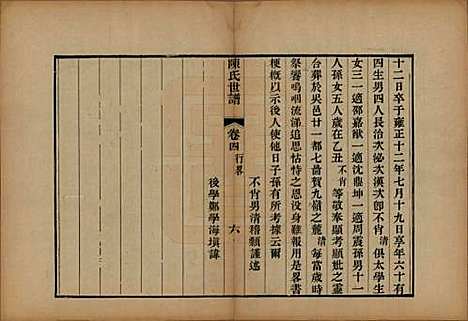 十二日卒于雍正十二年七月十九日享年六十有
四生男四人長洽次泌次漢次卽不肖清俱太學生
女三一適邵嘉猷一適沈鼎坤一適周震孫男十一
人孫女五人歲在乙丑不肖等敬奉顯考顯妣之靈
台葬於吳邑廿一都七啚賀九嶺之麓清每當歲時
祭饗嗚咽流涕追思怙恃之恩没身難報用書
梗槪以示後人使他日子孫有所考據云爾
不肖男清稽顙謹述
後學鄭學海塡諱
陳氏世譜
卷四行畧
六